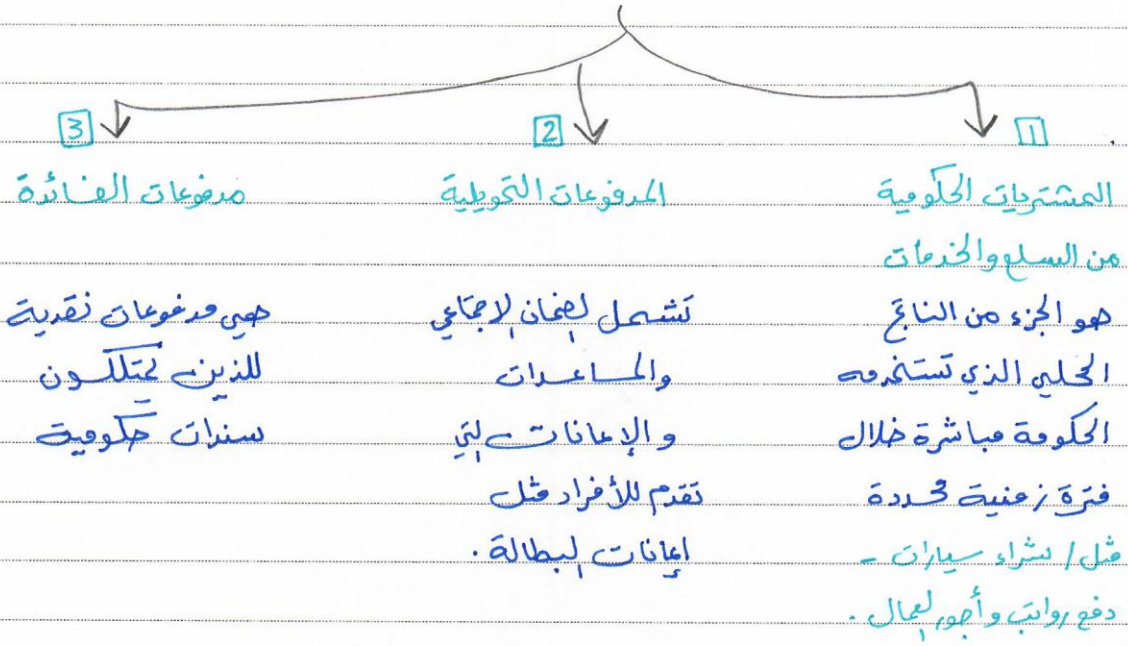 1
المشتريات الحكومية
من السلع والخدمات
هو الجزء من الناتج
المحلي الذي تستخدمه
الحكومة مباشرة خلال
فترة زمنية محددة
مثل / شراء سيارات -
دفع رواتب وأجور العمال .
2
المدفوعات التحويلية
تشمل الضمان الاجتماعي
والمساعدات
والإعانات التي
تقدم للأفراد مثل
إعانات البطالة .
3
مدفوعات الفائدة
هي مدفوعات نقدية
للذين يمتلكون
سندات حكومية